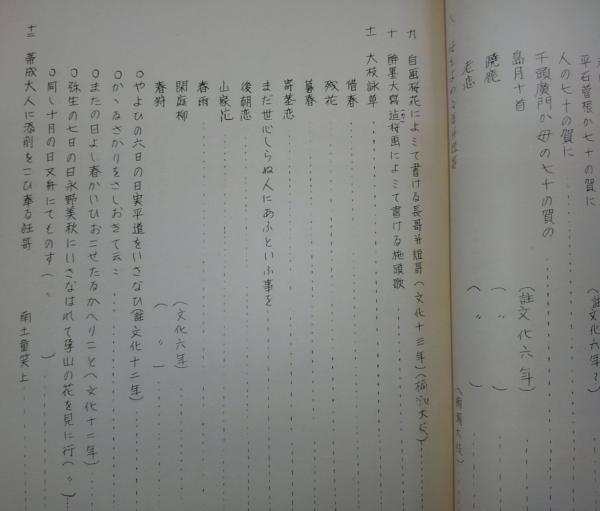 平石菅根か七十の賀に
人の七十の賀に
千頭廣門か母の七十の賀の
(註文化六年?)
島月十首 (註文化六年)
曉鹿 ( 〃 )
老恋 ( 〃 )
九 自画桜花によミて書ける長哥并短哥(文化十三年)
十 酔墨大寫 桜画によミて書ける施頭歌
十一 大枝詠草
惜春
残花
暮春
寄墓恋
まだ世心しらぬ人にあふといふ事を
後朝恋
山家花
春雨
閑庭柳 (文化六年)
春狩 ( 〃 )
○やよひの六日の日実平道をいさなひ(註文化十二年)
○かゝるさかりをさしおきて云々
○またの日よし春かいひおこせたるかへりこと(文化十二年)
○弥生の七日の日永野美秋にいさなはれて孕山の花を見に行(〃)
○同し十月の日又舟にてものす( 〃 )
十二 幕成大人に添削をこひ奉る狂哥 南土童笑上